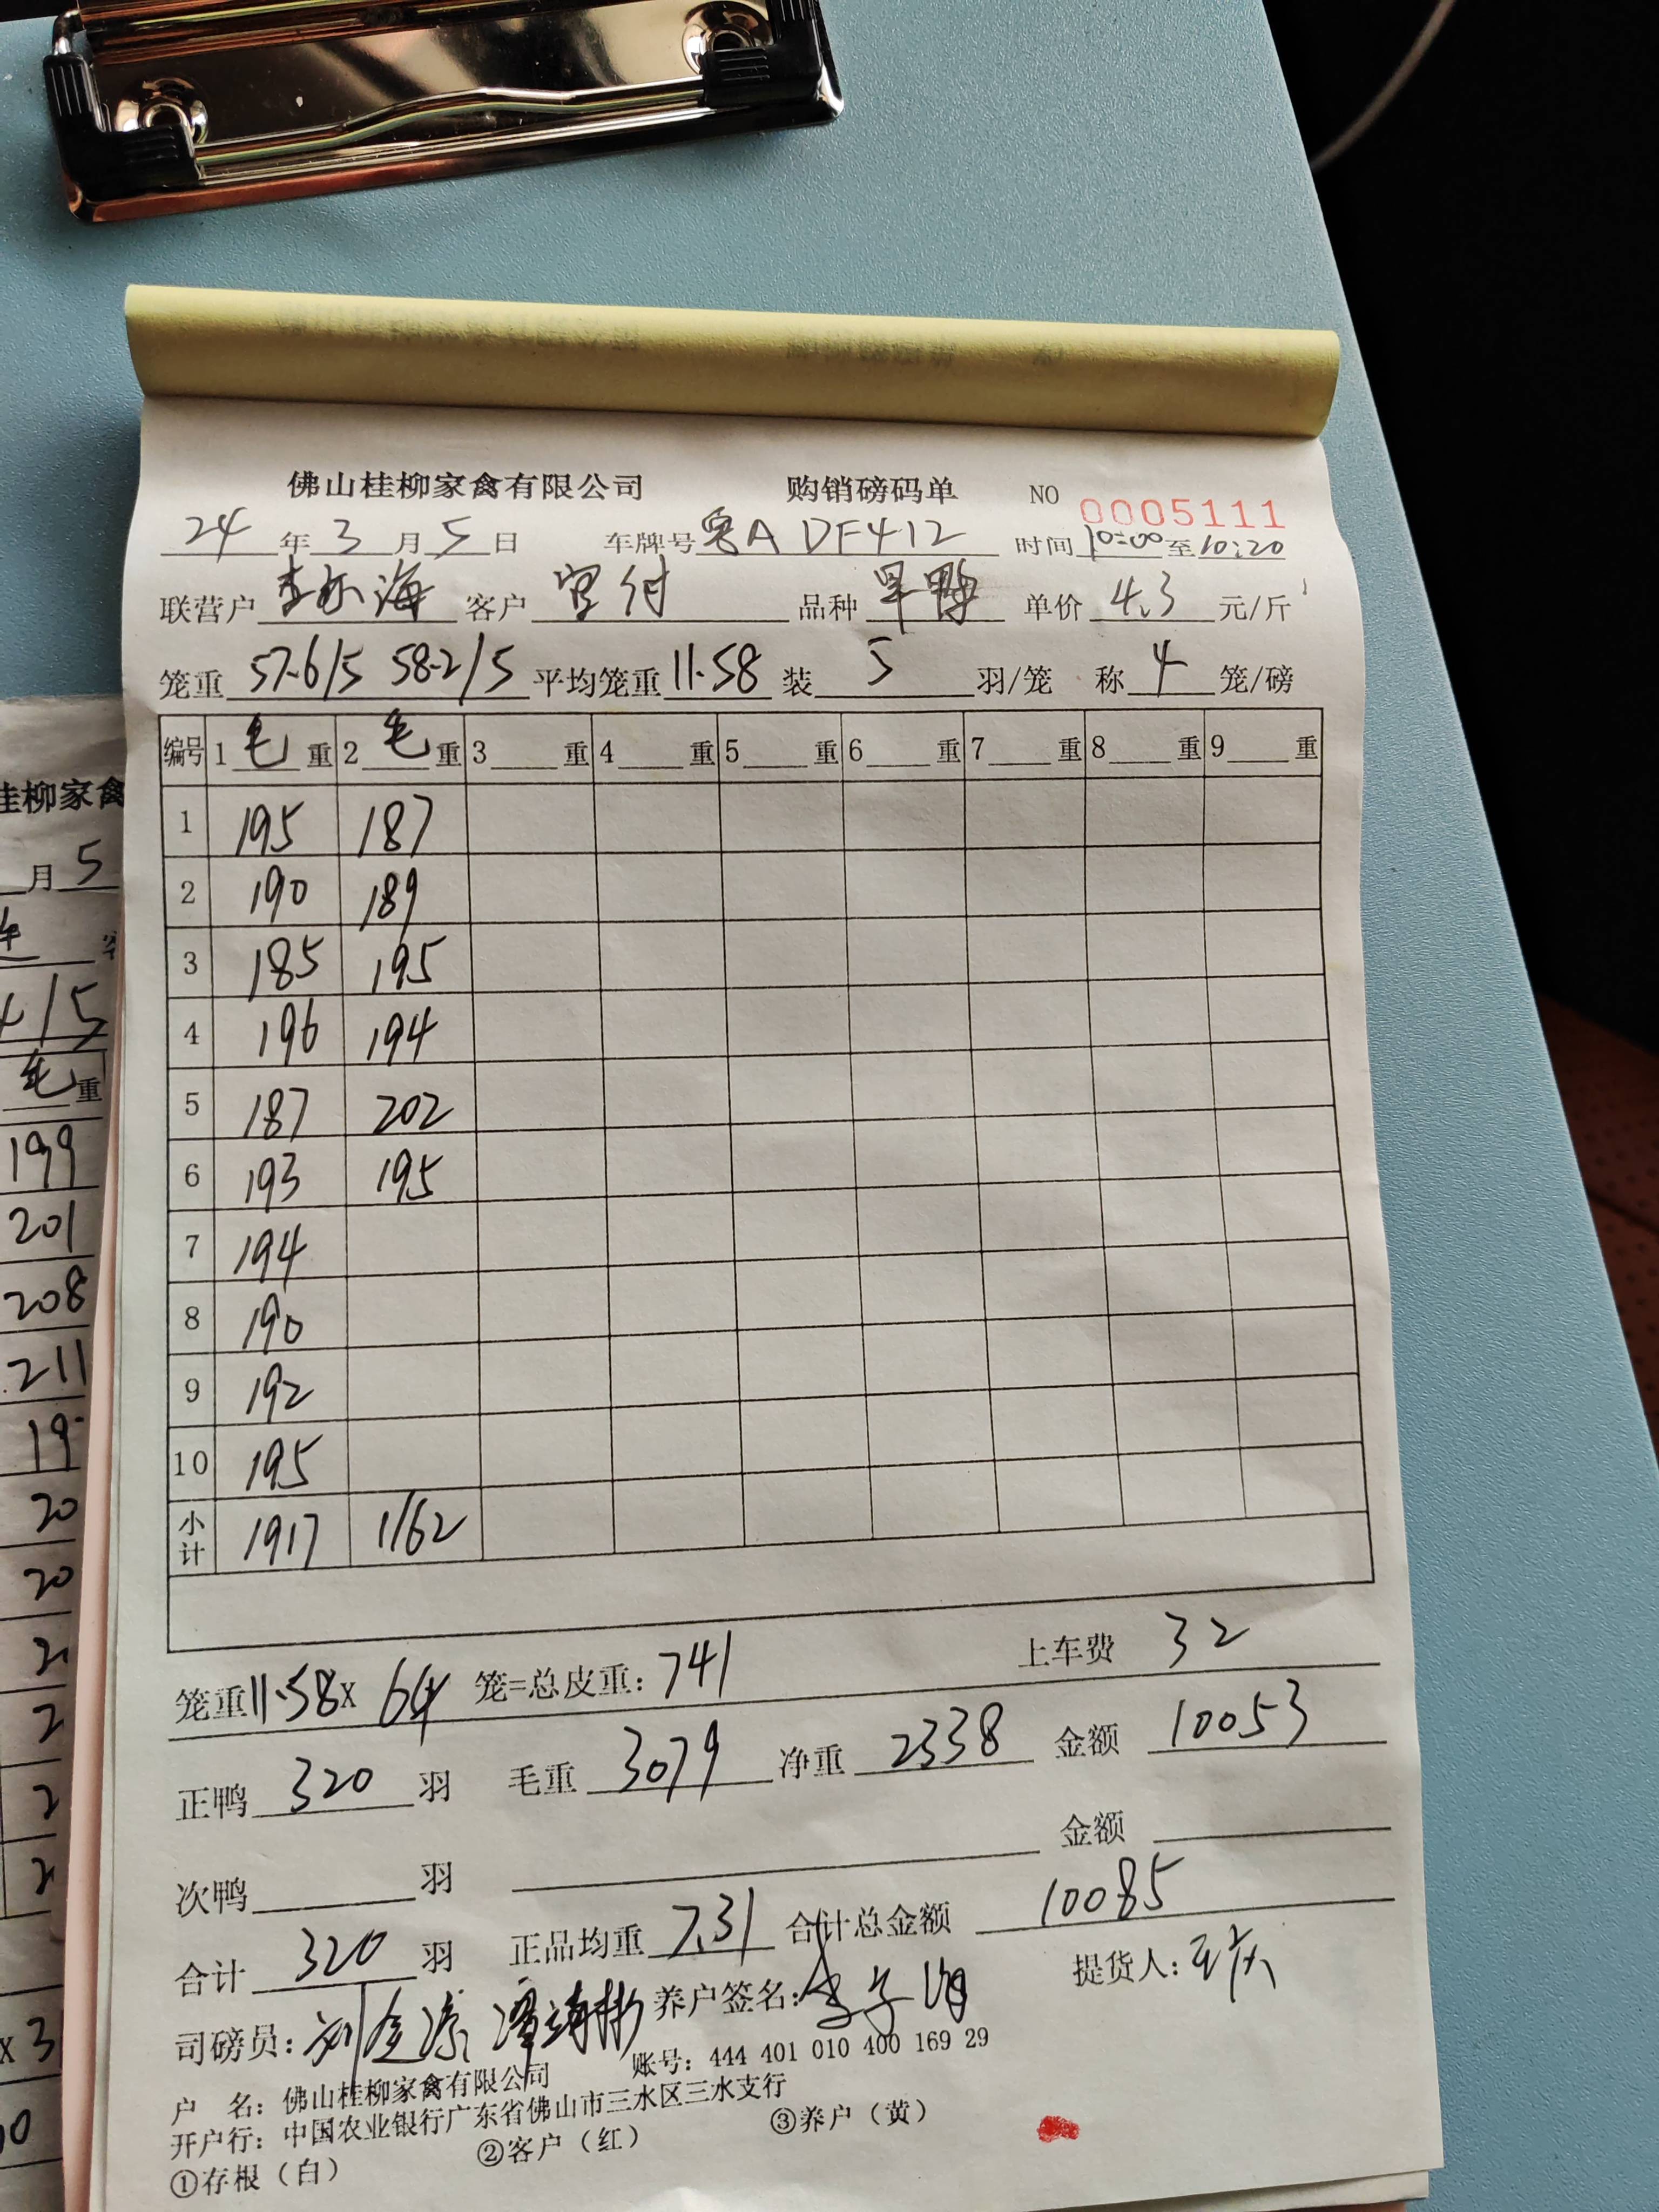 佛山桂柳家禽有限公司 购销磅码单 NO 0005111
24年3月5日 车牌号 粤A DF412 时间 10:00至10:20
联营户 李标海 客户 官付 品种 旱鸭 单价 4.3 元/斤
笼重 57.6/5 58.2/5 平均笼重 11.58 装 5 羽/笼 称 4 笼/磅
编号 1 毛 重 2 毛 重 3 重 4 重 5 重 6 重 7 重 8 重 9 重
1 195 187
2 190 189
3 185 195
4 196 194
5 187 202
6 193 195
7 194
8 190
9 192
10 195
小计 1917 1162
笼重11.58x 64 笼=总皮重: 741 上车费 32
正鸭 320 羽 毛重 3079 净重 2338 金额 10053
次鸭 羽 金额
合计 320 羽 正品均重 7.31 合计总金额 10085
司磅员: 养户签名: 提货人:
户 名: 佛山桂柳家禽有限公司 账号: 444 401 010 400 169 29
开户行: 中国农业银行广东省佛山市三水区三水支行
①存根（白） ②客户（红） ③养户（黄）
桂柳家禽
月 5
/5
毛 重
199
201
208
211
19
20
20
x 3